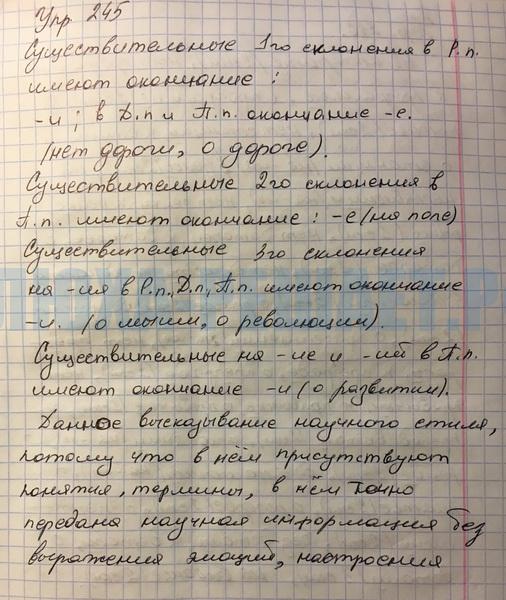 Упр 245
Существительные 1го склонения в Р.п.
имеют окончание :
-и ; в Д.п и П.п. окончание -е.
(нет дороги, о дороге).
Существительные 2го склонения в
П.п. имеют окончание : -е (на поле)
Существительные 3го склонения
на -ия в Р.п., Д.п, П.п. имеют окончание
-и. (о мыши, о революции).
Существительные на -ие и -ий в П.п.
имеют окончание -и (о развитии).
Данное высказывание научного стиля,
потому что в нём присутствуют
понятия, термины, в нём точно
передана научная информация без
выражения эмоций, настроения